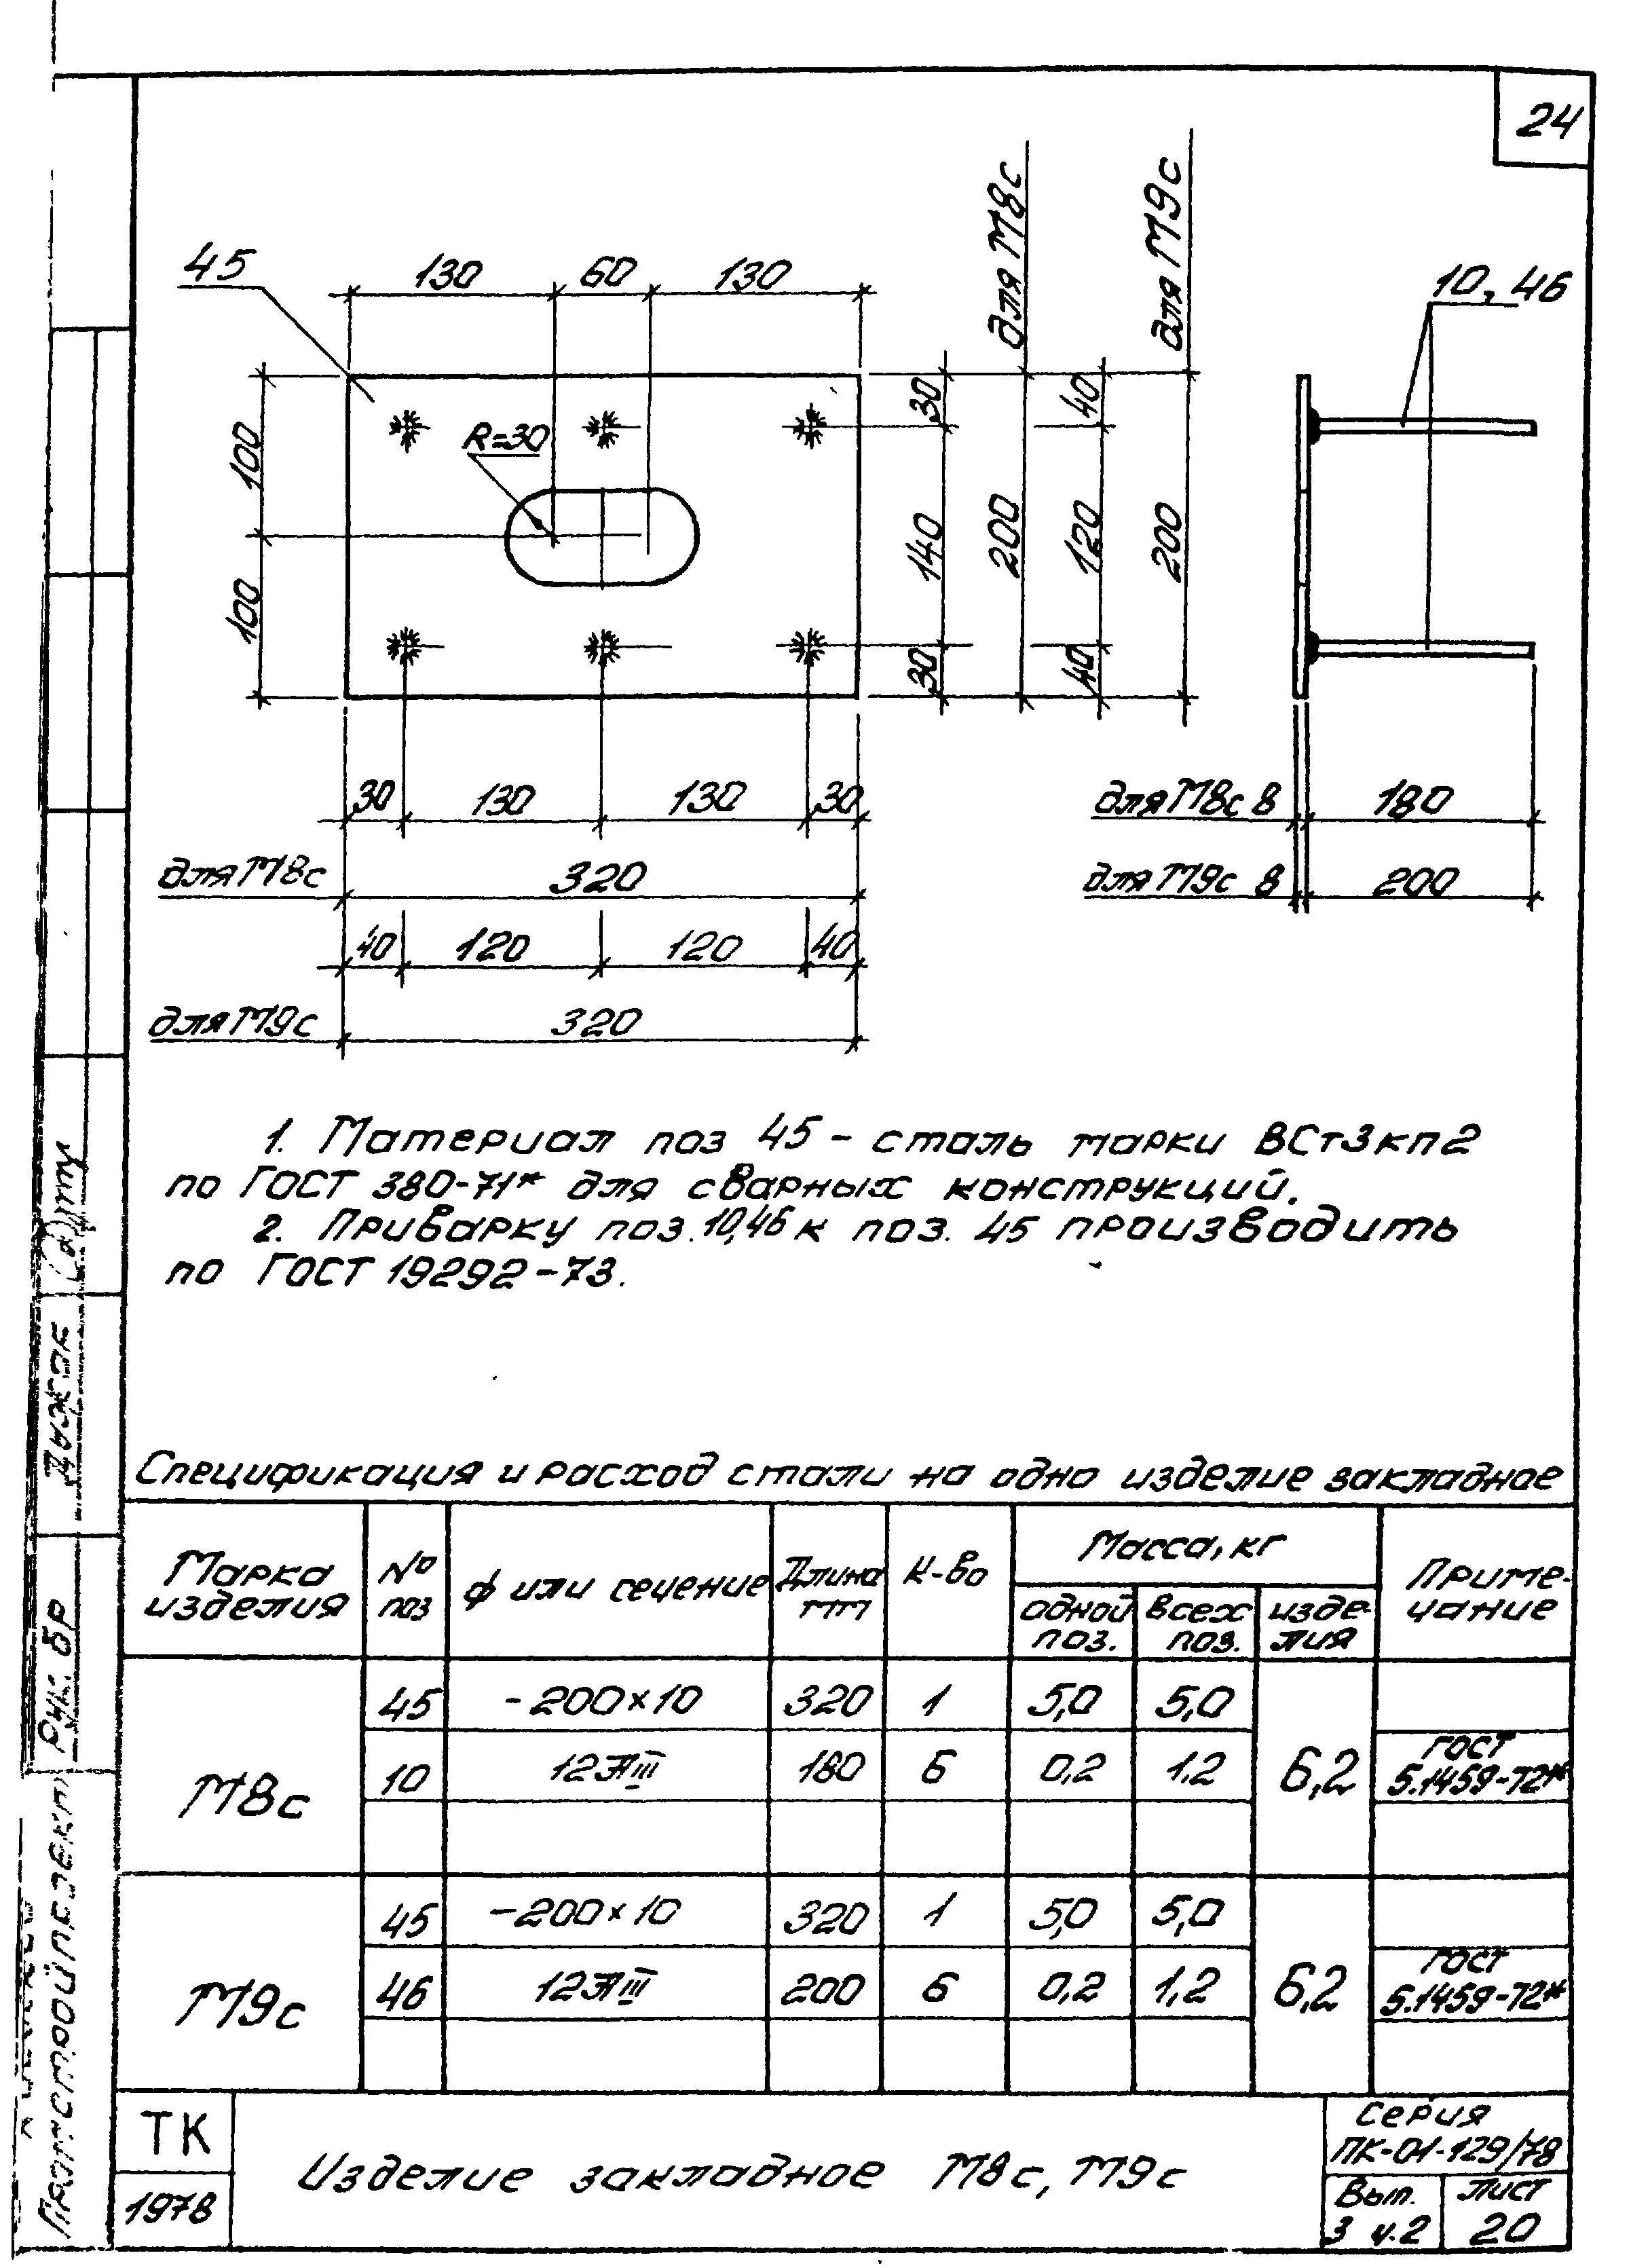 24
для М8с
для М9с
45
130 60 130
10, 46
R=30
100
100
30
140
30
200
40
120
40
200
30 130 130 30
для М8с 320
40 120 120 40
для М9с 320
для М8с 8 180
для М9с 8 200
1. Материал поз 45 - сталь марки ВСт3кп2
по ГОСТ 380-71* для сварных конструкций.
2. Приварку поз. 10,46 к поз. 45 производить
по ГОСТ 19292-73.
Спецификация и расход стали на одно изделие закладное
Марка изделия № поз ф или сечение Длина мм К-во Масса, кг Приме-
чание
одной поз. всех поз. изде-
лия
М8с 45 - 200×10 320 1 5,0 5,0 6,2
10 12АIII 180 6 0,2 1,2 ГОСТ 5.1459-72*
М9с 45 - 200×10 320 1 5,0 5,0 6,2
46 12АIII 200 6 0,2 1,2 ГОСТ 5.1459-72*
ТК
1978
Изделие закладное М8с, М9с
Серия
ПК-01-129/78
Вып. Лист
3 ч.2 20
Рук. бр